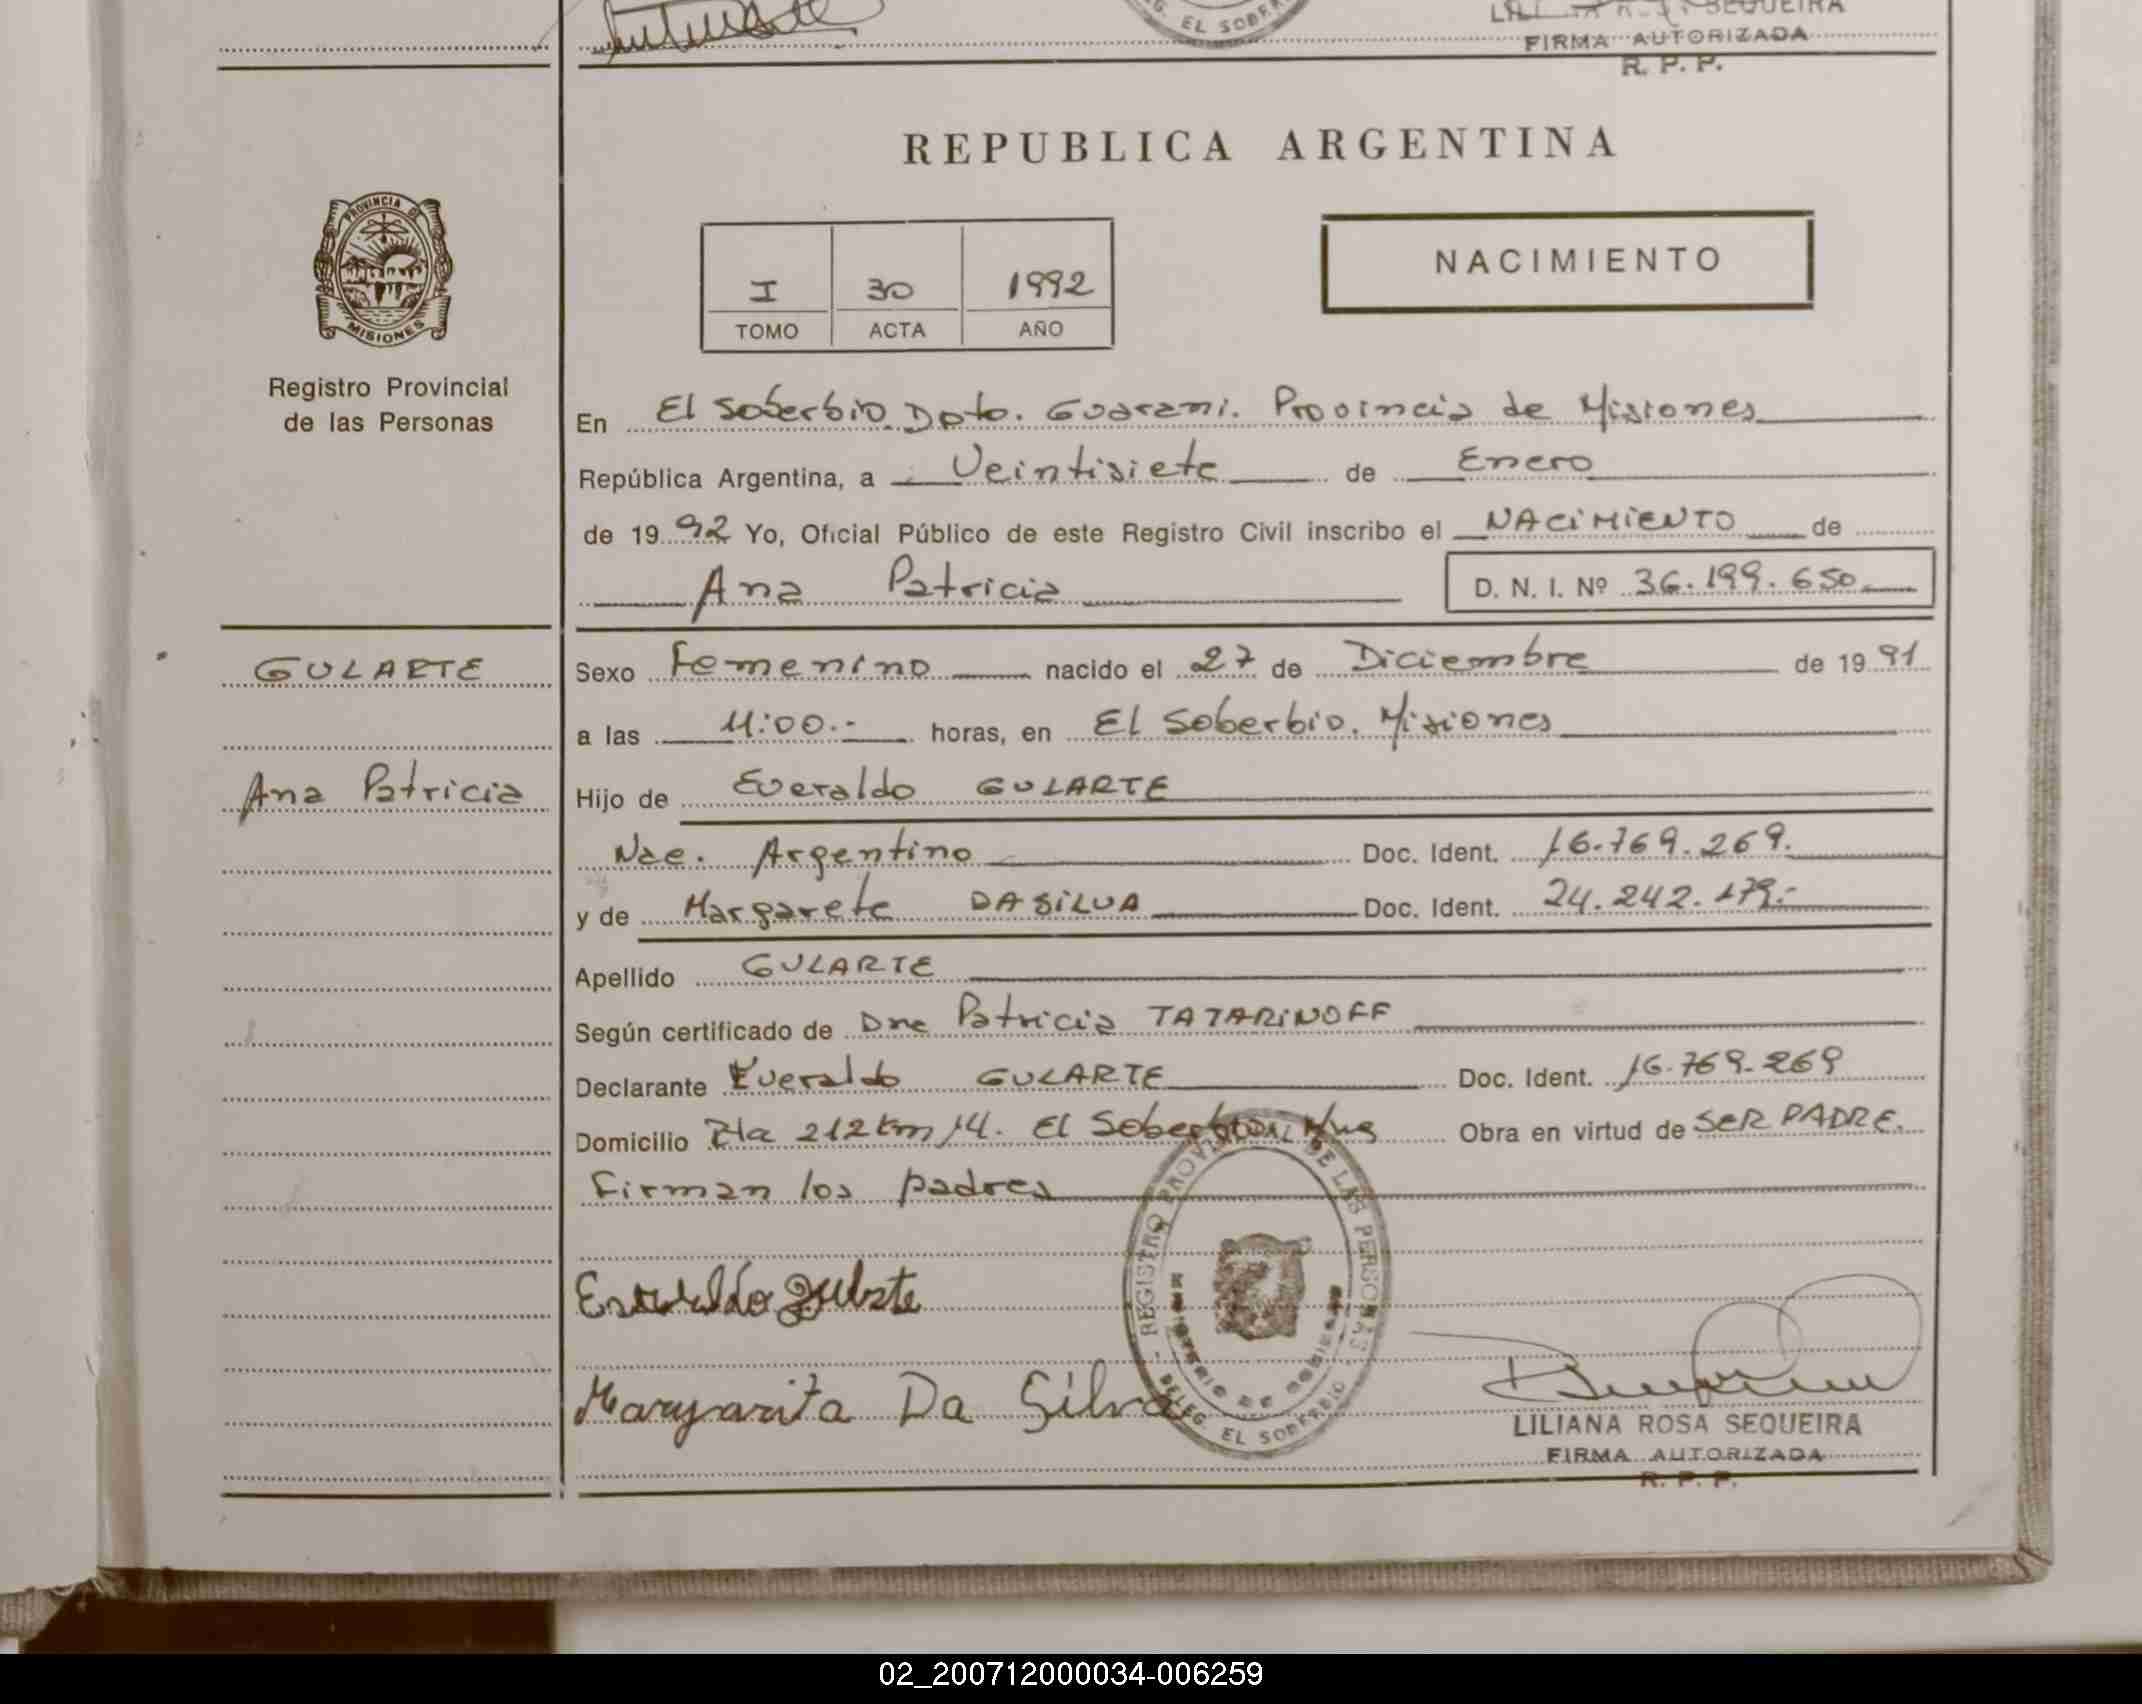 EL SOBERBIO
SEQUEIRA
FIRMA AUTORIZADA
R. P. P.
REPUBLICA ARGENTINA
PROVINCIA DE
MISIONES
Registro Provincial
de las Personas
I 30 1992
TOMO ACTA AÑO
NACIMIENTO
En El Soberbio. Dpto. Guarani. Provincia de Misiones
República Argentina, a Veintisiete de Enero
de 1992 Yo, Oficial Público de este Registro Civil inscribo el NACIMIENTO de
Ana Patricia D. N. I. Nº 36.199.650.
GULARTE
Ana Patricia
Sexo Femenino nacido el 27 de Diciembre de 1991
a las 11:00.- horas, en El Soberbio. Misiones
Hijo de Everaldo GULARTE
Nac. Argentino Doc. Ident. 16.769.269.
y de Margarete DA SILVA Doc. Ident. 24.242.179.-
Apellido GULARTE
Según certificado de Dra Patricia TATARINOFF
Declarante Everaldo GULARTE Doc. Ident. 16.769.269
Domicilio Rta 212 Km 14. El Soberbio Obra en virtud de SER PADRE.
Firman los padres
REGISTRO PROVINCIAL DE LAS PERSONAS
MINISTERIO DE GOBIERNO
DELEG. EL SOBERBIO
Margarita Da Silva
LILIANA ROSA SEQUEIRA
FIRMA AUTORIZADA
R. P. P.
02_200712000034-006259